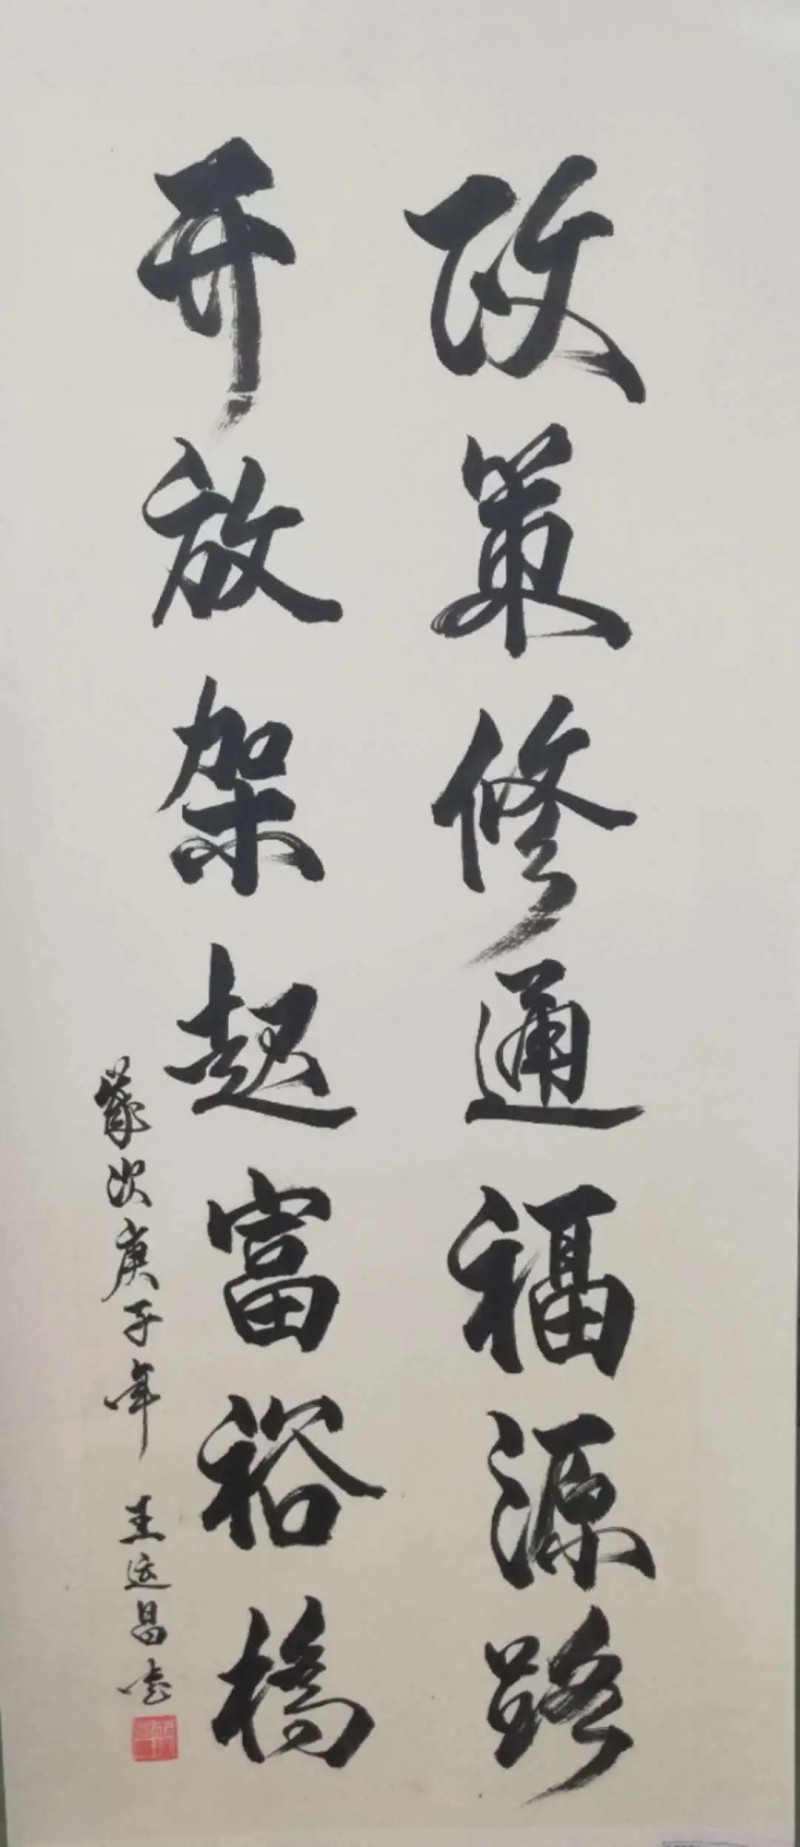 政策修通福源路
开放架起富裕橋
歲次庚子年 王运昌书